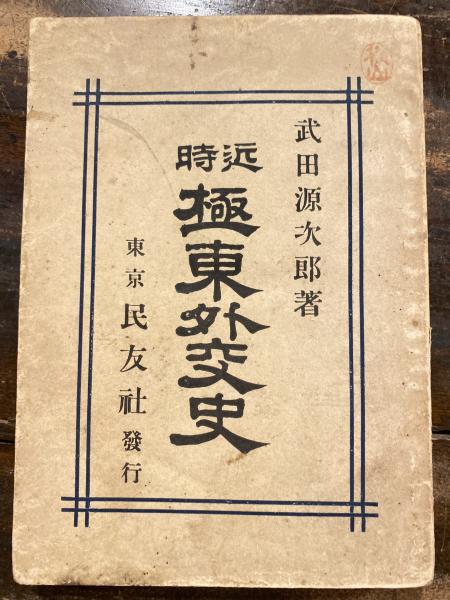 武田源次郎著
近時
極東外交史
東京 民友社 發行